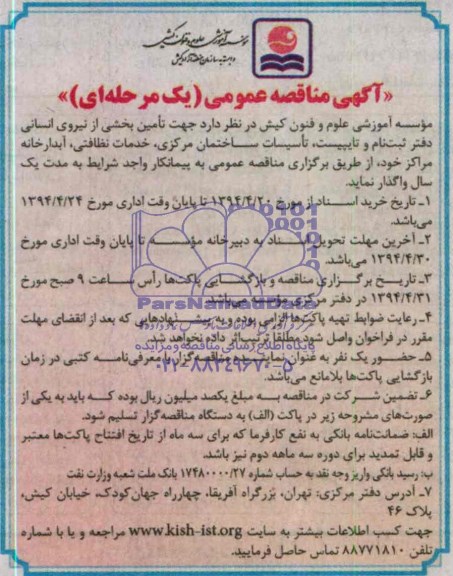 موسسه آموزشی علوم و فنون کیش
وابسته به سازمان منطقه آزاد کیش
«آگهی مناقصه عمومی (یک مرحله‌ای)»
مؤسسه آموزشی علوم و فنون کیش در نظر دارد جهت تأمین بخشی از نیروی انسانی
دفتر ثبت‌نام و تایپیست، تأسیسات ساختمان مرکزی، خدمات نظافتی، آبدارخانه
مراکز خود، از طریق برگزاری مناقصه عمومی به پیمانکار واجد شرایط به مدت یک
سال واگذار نماید.
۱ـ تاریخ خرید اسناد از مورخ ۱۳۹۴/۴/۲۰ تا پایان وقت اداری مورخ ۱۳۹۴/۴/۲۴
می‌باشد.
۲ـ آخرین مهلت تحویل اسناد به دبیرخانه مؤسسه تا پایان وقت اداری مورخ
۱۳۹۴/۴/۳۰ می‌باشد.
۳ـ تاریخ برگزاری مناقصه و بازگشایی پاکت‌ها رأس ساعت ۹ صبح مورخ
۱۳۹۴/۴/۳۱ در دفتر مرکزی مؤسسه می‌باشد.
ParsNamadData
۴ـ رعایت ضوابط تهیه پاکت‌ها الزامی بوده و به پیشنهادهایی که بعد از انقضای مهلت
مقرر در فراخوان واصل شود مطلقاً ترتیب اثر داده نخواهد شد.
پایگاه اطلاع رسانی مناقصه و مزایده
۵ـ حضور یک نفر به عنوان نماینده مناقصه‌گزار با معرفی‌نامه کتبی در زمان
۰۲۱-۸۸۳۴۹۶۷۰-۵
بازگشایی پاکت‌ها بلامانع می‌باشد.
۶ـ تضمین شرکت در مناقصه به مبلغ یکصد میلیون ریال بوده که باید به یکی از
صورت‌های مشروحه زیر در پاکت (الف) به دستگاه مناقصه‌گزار تسلیم شود.
الف: ضمانت‌نامه بانکی به نفع کارفرما که برای سه ماه از تاریخ افتتاح پاکت‌ها معتبر
و قابل تمدید برای دوره سه ماهه دوم نیز باشد.
ب: رسید بانکی واریز وجه نقد به حساب شماره ۱۷۴۸۰۰۰۰/۲۷ بانک ملت شعبه وزارت نفت
۷ـ آدرس دفتر مرکزی: تهران، بزرگراه آفریقا، چهارراه جهان‌کودک، خیابان کیش،
پلاک ۴۶
جهت کسب اطلاعات بیشتر به سایت www.kish-ist.org مراجعه و یا با شماره
تلفن ۸۸۷۷۱۸۱۰ تماس حاصل فرمایید.